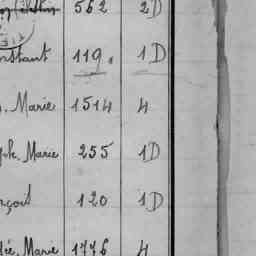 562 2D
nstant 119. 1D
. Marie 1514 4
ph. Marie 255 1D
nçois 120 1D
ée, Marie 1776 4